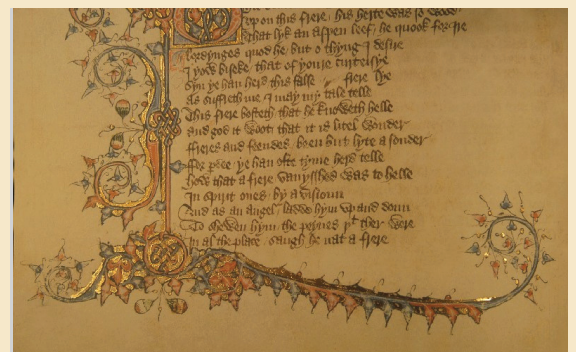 vp on this frere / his herte was so wood
That lyk an aspen leef / he quook for Ire
Lordynges quod he / but o thyng I desire
I yow biseke / that of youre curteisye
Syn ye han herd this false frere lye
As suffreth me I may my tale telle
This frere bosteth / that he knoweth helle
And god it woot / that it is litel wonder
ffreres and feendes / been but lyte a sonder
ffor pdee / ye han ofte tyme herd telle
How that a frere / vanysshed was to helle
In spirit ones / by a visioun
And as an angel / ladde hym vp and doun
To shewen hym / the peynes þt ther were
In al the place / saugh he nat a frere